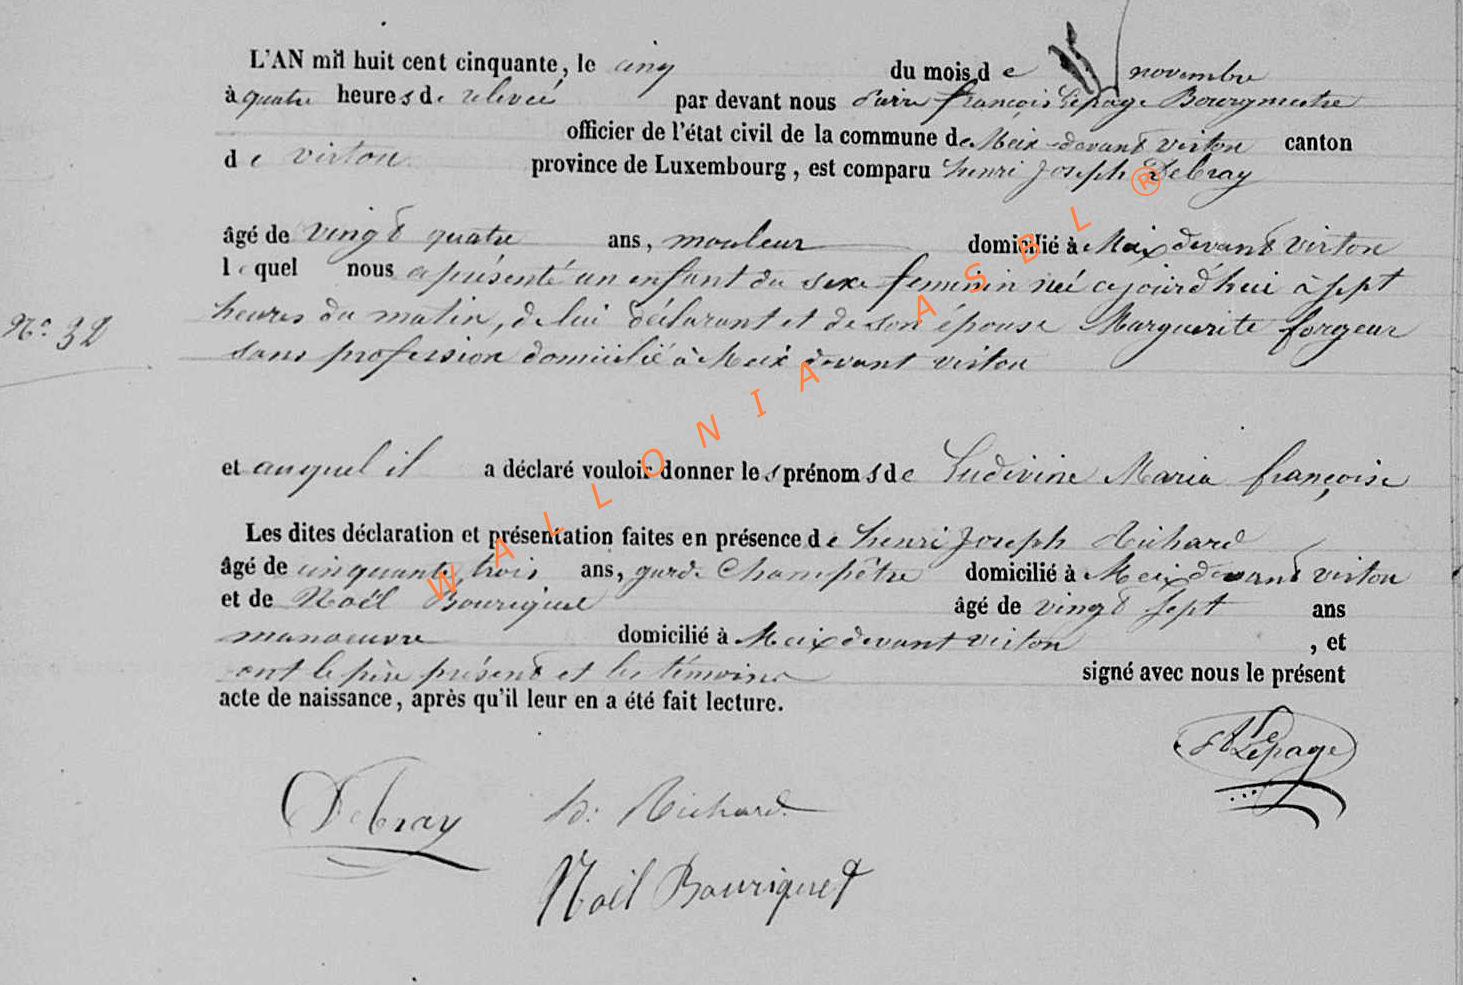 L'AN mil huit cent cinquante, le cinq du mois de novembre
à quatre heures de relevée par devant nous Pierre françois Lepage Bourgmestre
officier de l'état civil de la commune de Meix-devant virton canton
de virton province de Luxembourg, est comparu henri Joseph Debray
âgé de vingt quatre ans, mouleur domicilié à Meix devant Virton
lequel nous a présenté un enfant du sexe feminin né cejourd'hui à sept
heures du matin, de lui déclarant et de son épouse Marguerite forgeur
N° 32
sans profession domicilié à Meix devant virton
et auquel il a déclaré vouloir donner les prénoms de Ludivine Maria françoise
Les dites déclaration et présentation faites en présence de henri Joseph Richard
âgé de cinquante trois ans, garde Champêtre domicilié à Meix devant virton
et de Noël Bouriquet âgé de vingt sept ans
manoeuvre domicilié à Meix devant virton , et
ont le père présent et les témoins signé avec nous le présent
acte de naissance, après qu'il leur en a été fait lecture.
Lepage
Debray h: Richard
Noël Bouriquet
WALLONIA ASBL ®